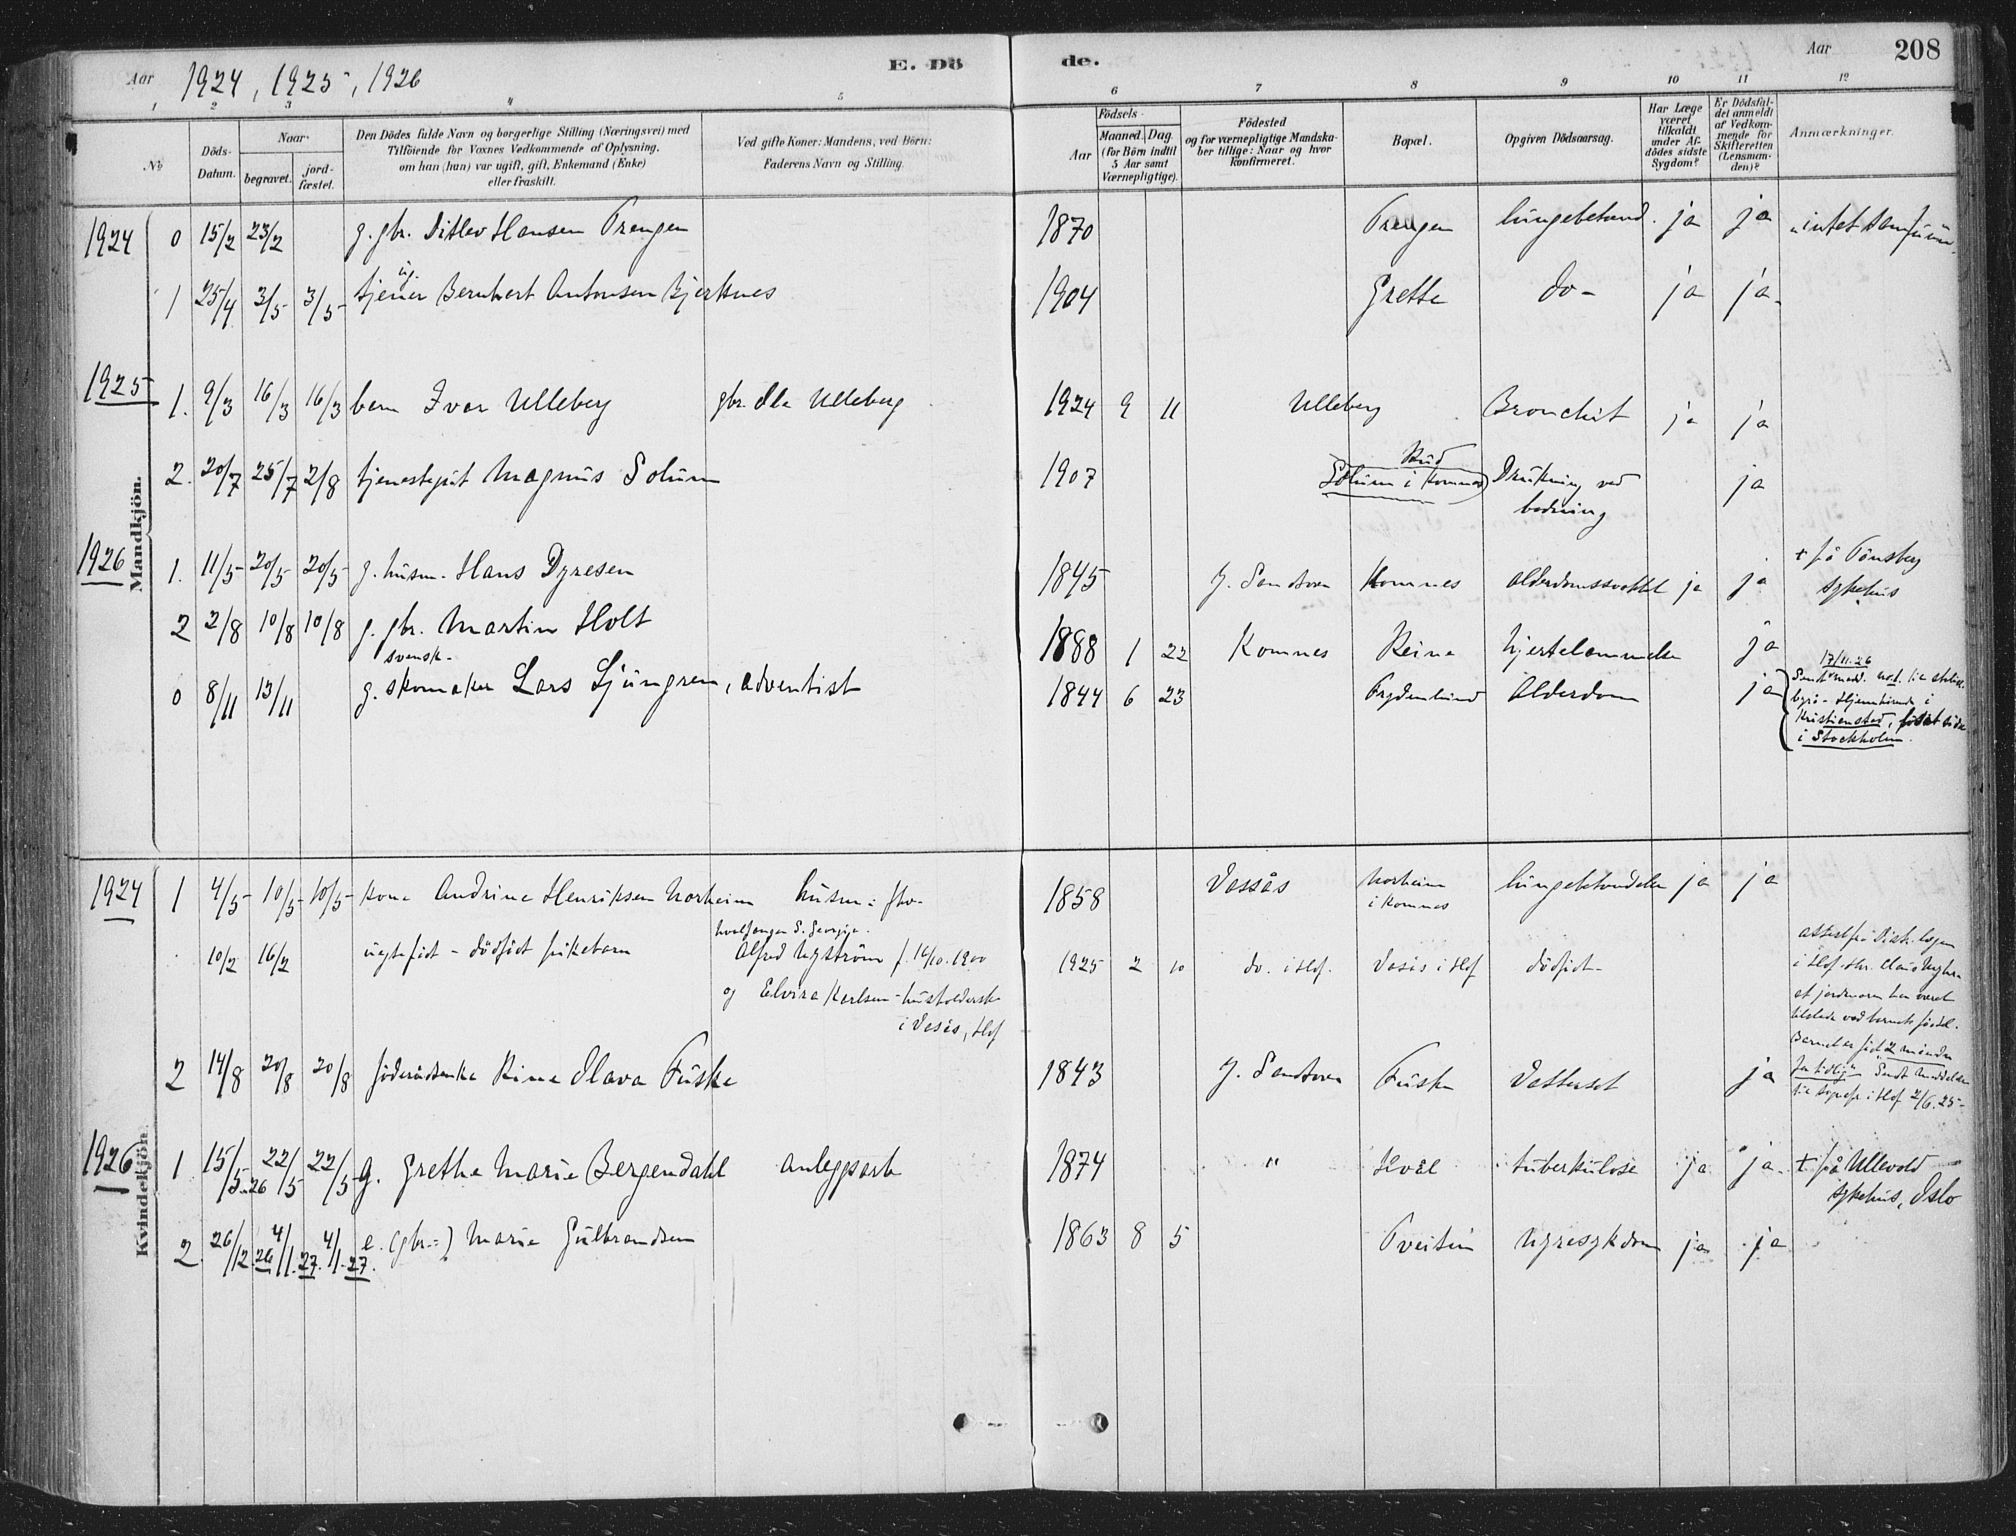 Aar 1924, 1925, 1926 E. Dö de. Aar 208
1 2 3 4 5 6 7 8 9 10 11 12
No
Döds-Datum.
Naar
begravet.
jordfæstet.
Den Dödes fulde Navn og borgerlige Stilling (Næringsvei) med
Tilföiende for Voxnes Vedkommende af Oplysning,
om han (hun) var ugift, gift, Enkemand (Enke)
eller fraskilt.
Ved gifte Koner: Mandens, ved Börn:
Faderens Navn og Stilling.
Födsels-
Aar
Maaned. Dag.
(for Börn indtil
5 Aar samt
Værnepligtige).
Födested
og for værnepligtige Mandska-
ber tillige: Naar og hvor
konfirmeret.
Bopæl.
Opgiven Dödsaarsag.
Har Læge
været
tilkaldt
under Af-
dödes sidste
Sygdom?
Er Dödsfal-
det anmeldt
af Vedkom-
mende for
Skifteretten
(Lensman-
den)?
Anmærkninger.
Mandkjön.
1924 0 15/2 23/2 g. gbr. Ditlev Hansen Prengen 1870 Prengen lungebetænd. ja ja intet samfunn
ug.
1 25/4 3/5 3/5 tjener Bernhert Antonsen Bjerknes 1904 Grette do- ja ja
1925 1. 9/3 16/3 16/3 barn Ivar Ulleberg gbr. Ole Ulleberg 1924 9 11 Ulleberg Bronchit ja ja
Rud
2. 20/7 25/7 2/8 tjenestegut Magnus Solum 1907 Solum i Komnes Drukning ved ja
badning
1926 1. 11/5 20/5 20/5 g. husm. Hans Dyresen 1845 Y. Sandsvær Komnes alderdomssvakhet ja ja + på Tönsberg
sykehus
2 2/8 10/8 10/8 g. gbr. Martin Holt 1888 1 22 Komnes Reine hjertelammelse ja
svensk.
0 8/11 13/11 g. skomaker Lars Ljungren, adventist 1844 6 23 Frydenlund Alderdom ja 17/11.26
i
Kristiansted,
i Stockholm.
Kvindekjön
1924 1 4/5 10/5 10/5 kone Andrine Henriksen Norheim husm: 1858 Vassås Norheim lungebetændelse ja ja
i Komnes
hvalfanger S. Georgia.
10/2 16/2 uegtefödt - dödfödt pikebarn Alfred Nyström f. 16/10.1900 1925 2 10 do. i Hof. Vasås i Hof dödfödt-
og Elvira Karlsen - husholderske
i Vasås, Hof
attest fra Distr.lægen
i Hof
at jordmoren har været
tilstede ved barnets födsel.
Barnet er födt 2 måneder
for tidlig. Sendt meddelelse
til i Hof 2/6.25-
2 14/8 20/8 20/8 föderådsenke Rine Olava Fuske 1843 Y. Sandsvær Fuske Vattersot ja
1926 1 15/5.26 22/5 22/5 g. Grethe Marie Bergendahl anleggsarb 1874 " Hval tuberkulose ja ja + på Ullevold
sykehus, Oslo
2. 26/12.26 4/1.27. 4/1.27. e. (gbr.) Marie Gulbrandsen 1863 8 5 Tveitun Nyresykdom ja ja